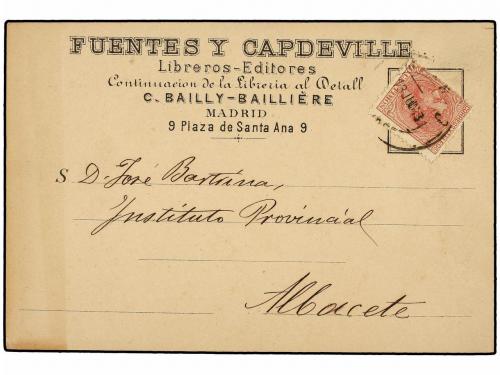 FUENTES Y CAPDEVILLE
Libreros-Editores
Continuacion de la Libreria al Detall
C. BAILLY-BAILLIÈRE
MADRID
9 Plaza de Santa Ana 9
S D. José Bartrina,
Instituto Provincial
Albacete